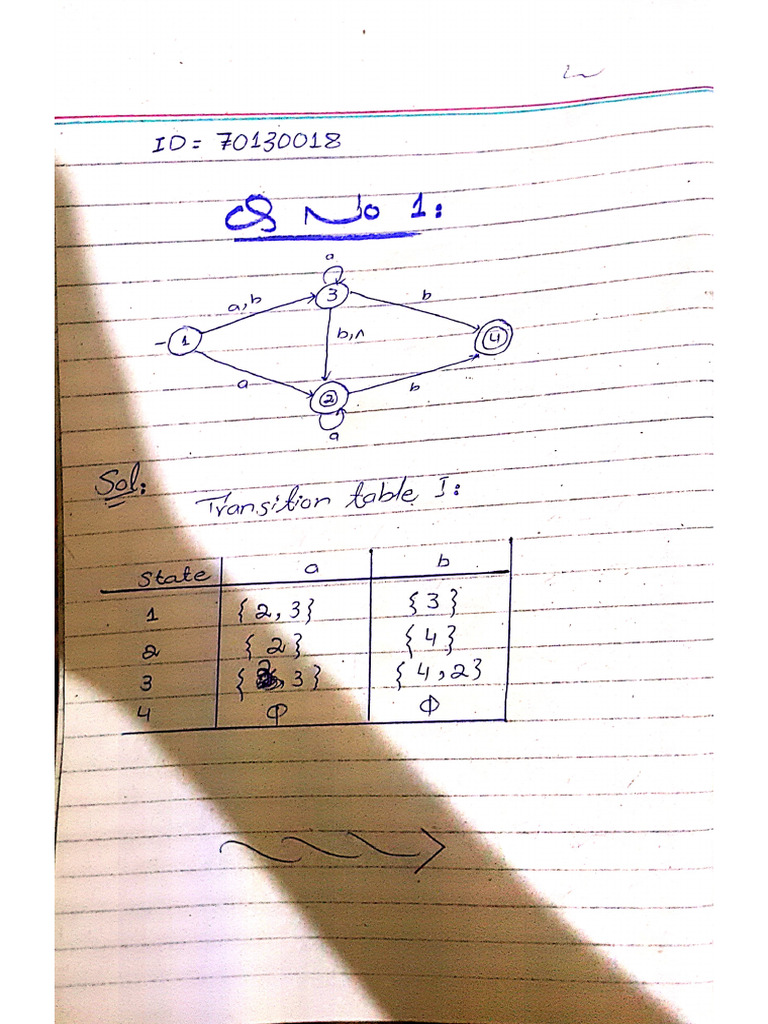 ID = 70130018
Q No 1:
a
3
a,b
b
- 1
b,∧
4
a
b
2
a
Sol: Transition table I:
State a b
1 {2,3} {3}
2 {2} {4}
3 {2,3} {4,2}
4 Φ Φ